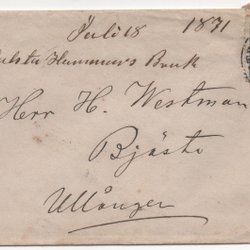 Juli 18 1871
Hammars Bruk
Herr H. Westman
Bjästa
Ullånger